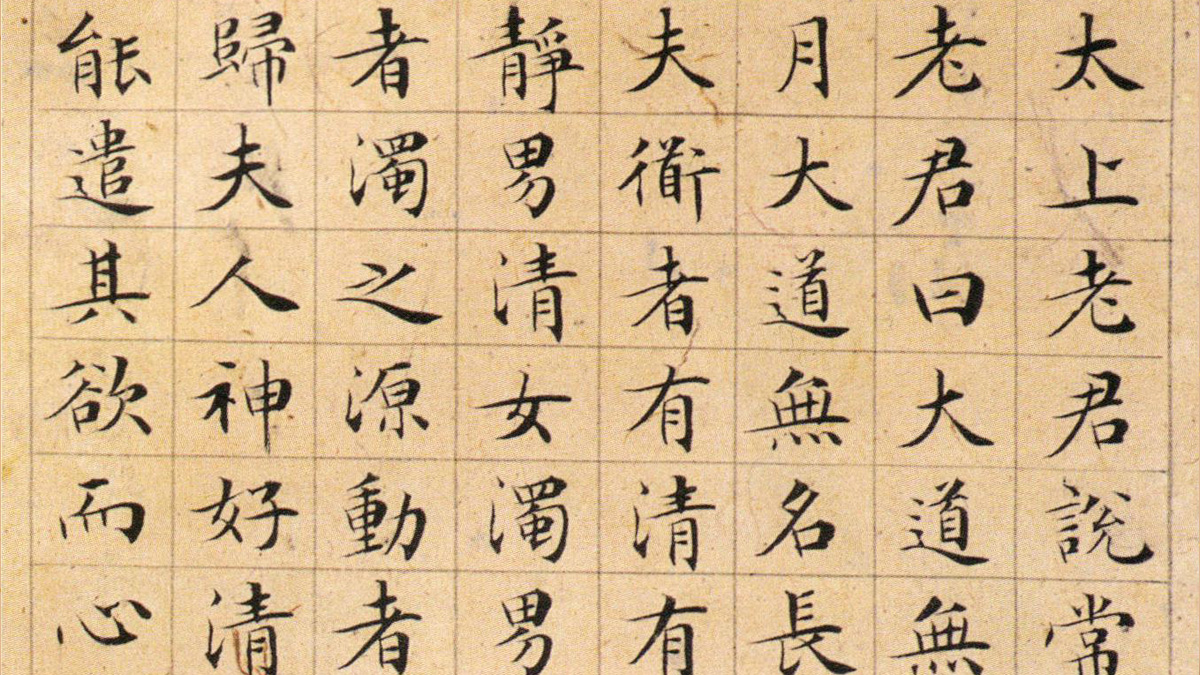 太上老君說常
老君曰大道無
月大道無名長
夫衜者有清有
靜男清女濁男
者濁之源動者
歸夫人神好清
能遣其欲而心